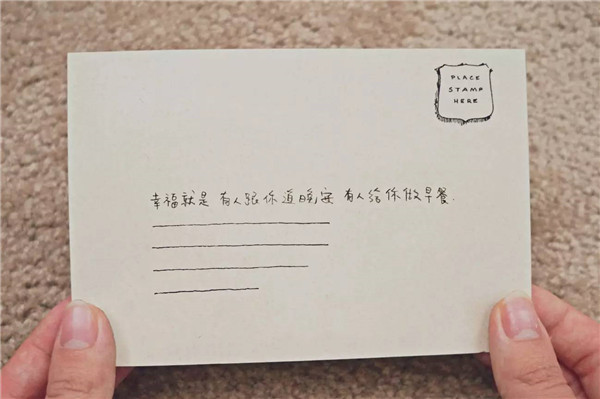 PLACE
STAMP
HERE
幸福就是 有人跟你道晚安 有人给你做早餐.